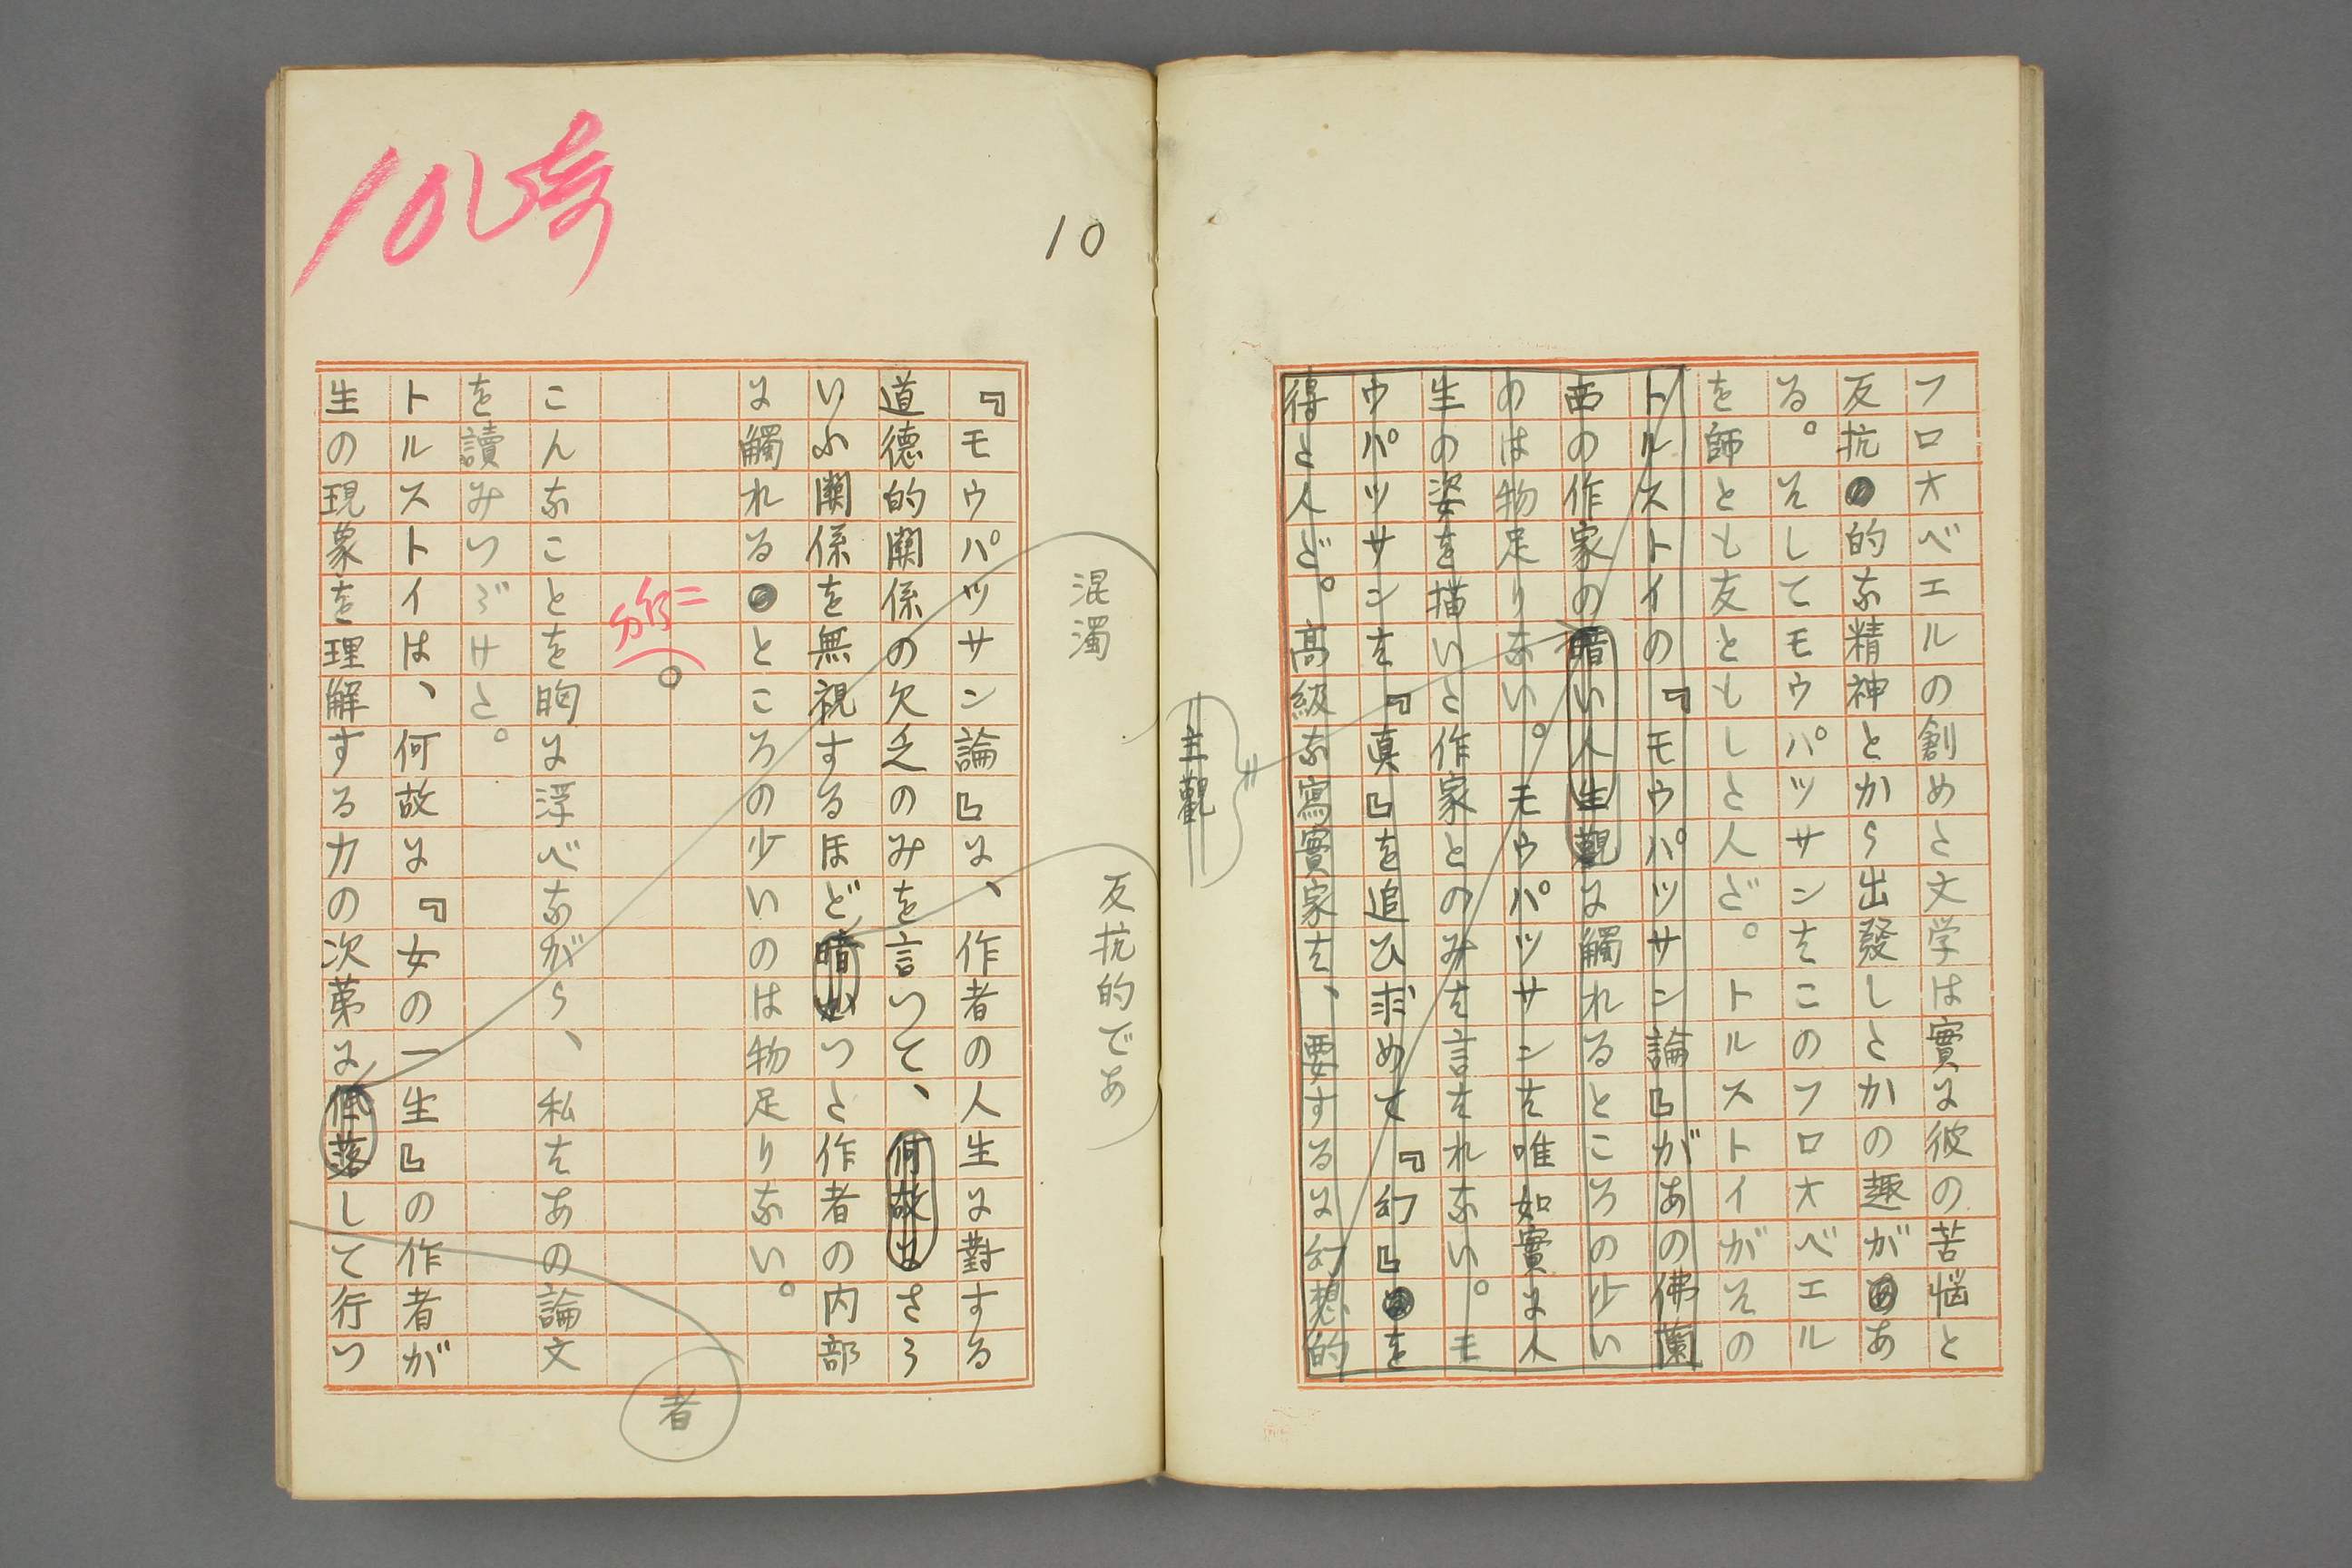 フロオベエルの創めた文学は實に彼の苦悩と
反抗的な精神とから出發したかの趣があ
る。そしてモウパツサンはこのフロオベエル
を師とも友ともした人だ。トルストイがその
トルストイの『モウパツサン論』があの佛蘭
西の作家の暗い人生觀に觸れるところの少い
のは物足りない。モウパツサンは唯如實に人
生の姿を描いた作家とのみは言はれない。モ
ウパツサンは『真』を追ひ求めて『幻』を
得た人だ。高級な寫實家は、要するに幻想的
主觀
10
混濁
反抗的であ
『モウパツサン論』に、作者の人生に對する
道德的關係の欠乏のみを言つて、何故にさう
いふ關係を無視するほど暗かつた作者の内部
に觸れるところの少いのは物足りない。
者
こんなことを胸に浮べながら、私はあの論文
を讀みつゞけた。
トルストイは、何故に『女の一生』の作者が
生の現象を理解する力の次第に低落して行つ
10